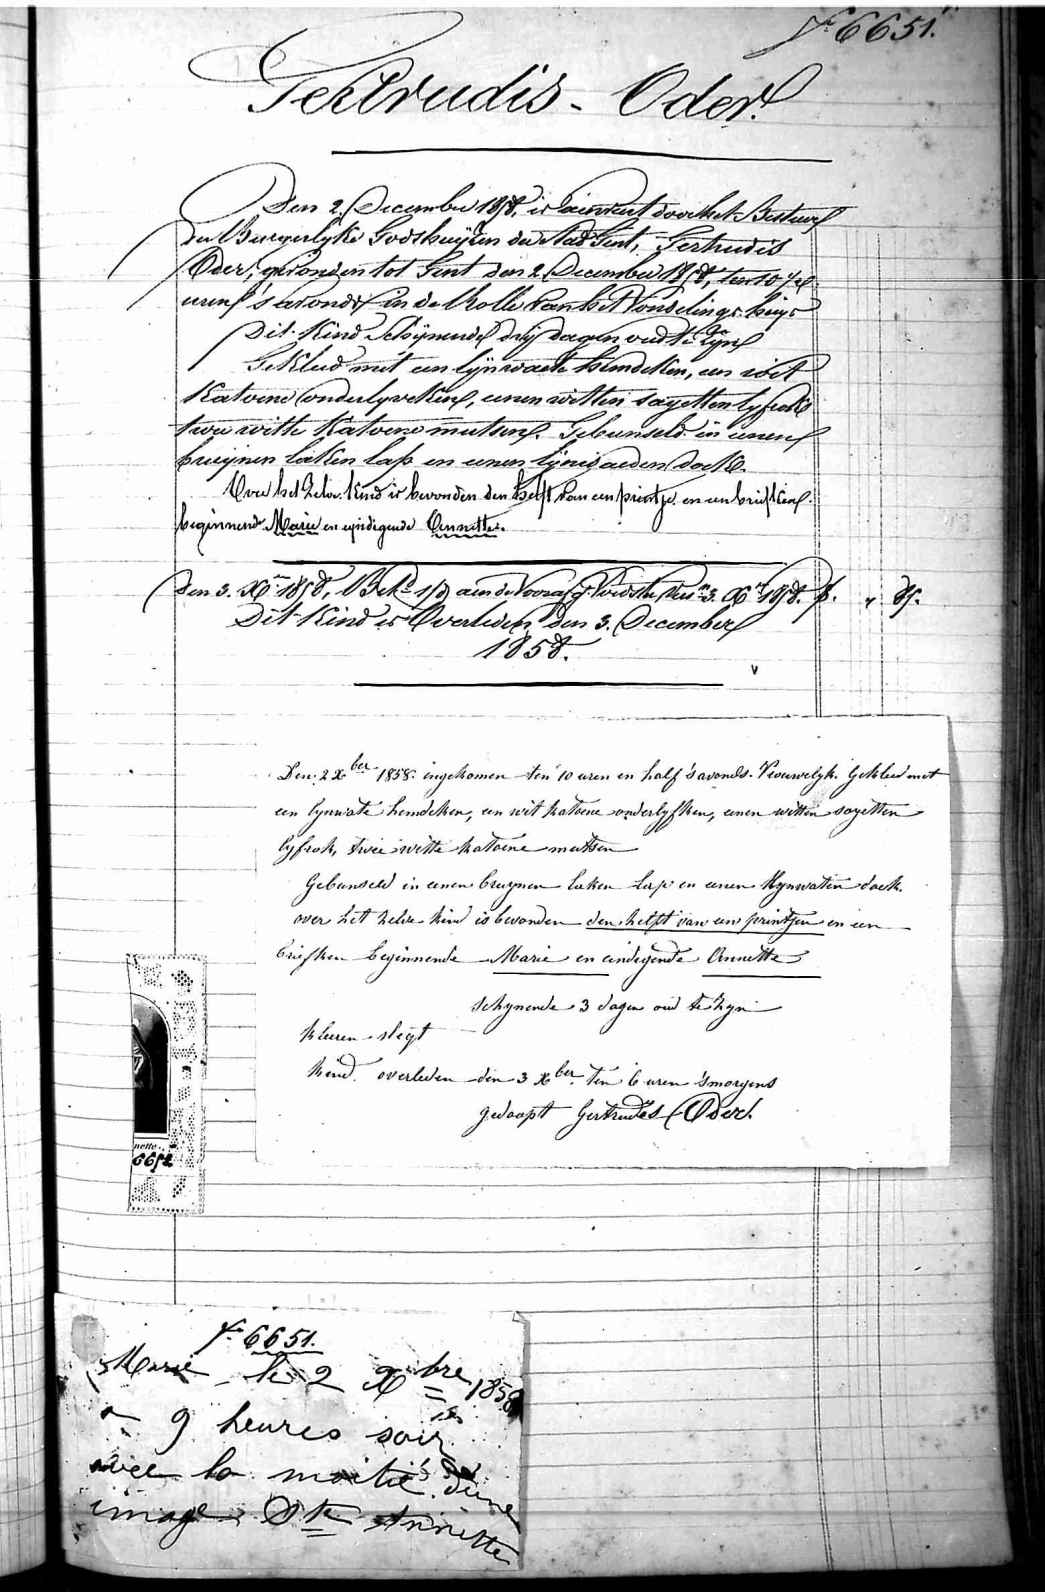 f° 6651.
Gertrudis - Oder.
Den 2 December 1858, is aenveerd door het Bestuur
der Burgerlyke Godshuizen der Stad Gent, Gertrudis
Oder, gevonden tot Gent den 2 December 1858, ten 10 1/2
uren 's avonds in de Rolle van het Vondelings huys
Dit Kind schijnende drij dagen oud te zijn
Gekleed met een lijnwaete hemdeken, een wit
Katoene onderlyveken, eenen witten sayetten lyfrok
twee witte Katoene mutsen. Gebunseld in eenen
bruijnen laken lap en eenen lijnwaeden doek.
Over het zelve Kind is bevonden den helft van een printje en een briefken
beginnende Marie en eyndigende Annette.
den 3. Xer 1858, Bet. 1/2 aen de Voorz. 3. Xer 1858. f. " 85.
Dit Kind is Overleden den 3. December
1858.
Den 2 Xber 1858 ingekomen ten 10 uren en half 's avonds. Vrouwelyk. Gekleed met
een lynwate hemdeken, een wit katoene onderlyfken, eenen witten sayetten
lyfrok, twee witte katoene mutsen
Gebunseld in eenen bruynen laken lap en eenen lynwaten doek.
over het zelve kind is bevonden den helft van een printjen en een
briefken beginnende Marie en eindigende Annette
schynende 3 dagen oud te zyn
kleeren slegt
kind overleden den 3 Xber ten 6 uren 'smorgens
gedoopt Gertrudes Oder.
nette.
6652
f° 6651.
Marie le 2 Xbre 1858
a 9 heures soir
avec la moitié d'une
image Ste Annette